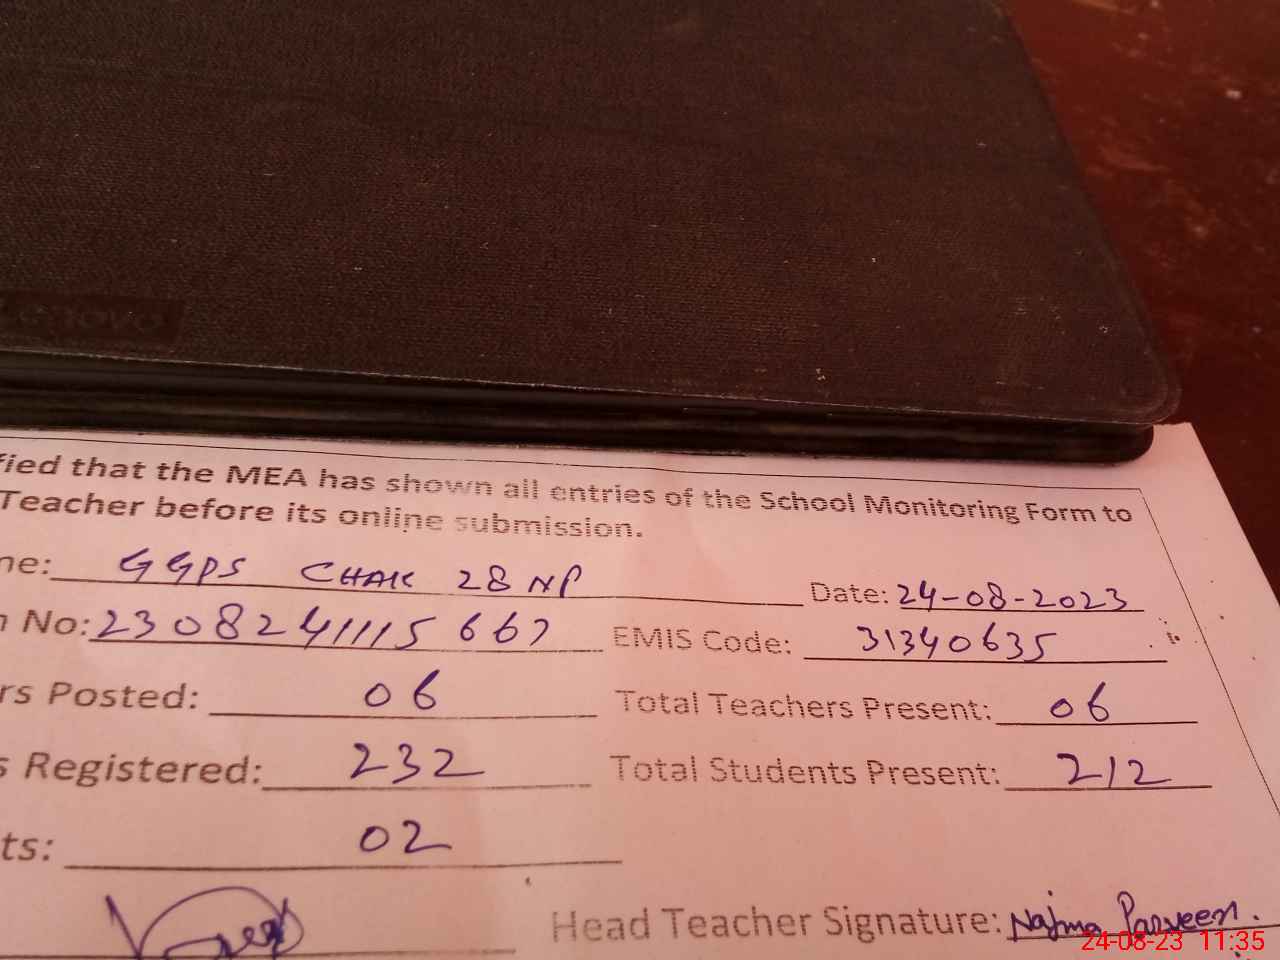 Lenovo
fied that the MEA has shown all entries of the School Monitoring Form to
Teacher before its online submission.
ne: GGPS CHAK 28 NP Date: 24-08-2023
n No: 2308241115667 EMIS Code: 31340635
rs Posted: 06 Total Teachers Present: 06
s Registered: 232 Total Students Present: 212
ts: 02
Head Teacher Signature: Najma Parveen.
24-08-23 11:35